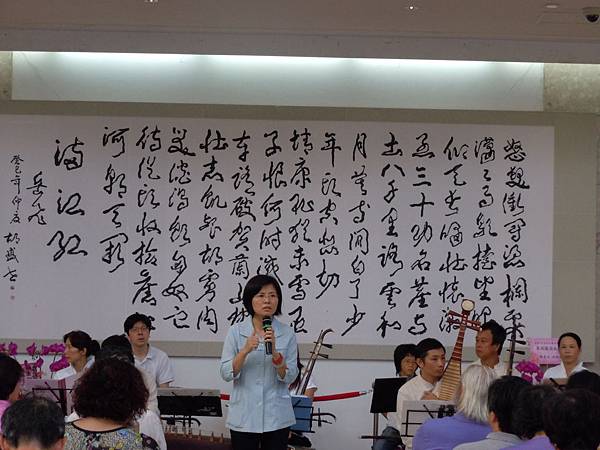 怒髮衝冠憑欄處
瀟瀟雨歇擡望眼
仰天長嘯壯懷激
烈三十功名塵與
土八千里路雲和
月莫等閒白了少
年頭空悲切
靖康恥猶未雪臣
子恨何時滅
車踏破賀蘭山缺
壯志飢餐胡虜肉
笑談渴飲匈奴血
待從頭收拾舊山
河朝天闕
滿江紅
岳飛
癸巳年仲夏 胡 書